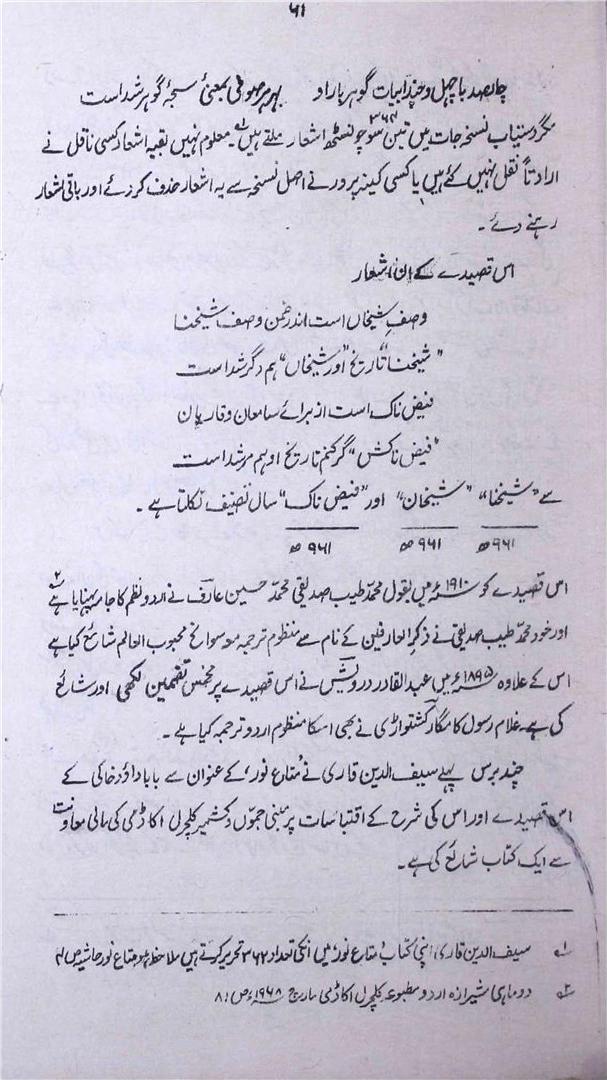 ۶۱
چارصد با چہل و چند ابیات گوہر بار او بہر ہر صوفی بمعنیٔ سبحۂ گوہر شد است
مگر دستیاب نسخہ جات میں تین سو چونسٹھ ۳۶۴ اشعار ملتے ہیں۱۔ معلوم نہیں بقیہ اشعار کسی ناقل نے
ارادتاً نقل نہیں کئے ہیں یا کسی کینہ پرور نے اصل نسخہ سے یہ اشعار حذف کرائے اور باقی اشعار
رہنے دئے۔
اس قصیدے کے ان اشعار
وصفِ شیخاں است اندر ضمن وصف شیخنا
"شیخنا" تاریخ اور "شیخاں" ہم دگر شد است
فیض ناک است از برائے سامعان و قاریان
"فیض ناکش" گر کنم تاریخ او ہم مر شد است
سے "شیخنا" "شیخان" اور "فیض ناک" سال تصنیف نکلتا ہے۔
۹۶۱ھ ۹۶۱ھ ۹۶۱ھ
اس قصیدے کو ۱۹۱۰ء میں بقول محمد طیب صدیقی محمد حسین عارف نے اردو نظم کا جامہ پہنایا ہے۲
اور خود محمد طیب صدیقی نے ذکر العارفین کے نام سے منظوم ترجمہ مو سوانح محبوب العالم شائع کیا ہے
اس کے علاوہ ۱۸۹۵ء میں عبدالقادر درویش نے اس قصیدے پر مخمس تضمین لکھی اور شائع
کی ہے۔ غلام رسول کامگار کشتواڑی نے بھی اسکا منظوم اردو ترجمہ کیا ہے۔
چند برس پہلے سیف الدین قاری نے 'متاع نور' کے عنوان سے بابا داؤد خاکی کے
اس قصیدے اور اس کی شرح کے اقتباسات پر مبنی جموں و کشمیر کلچرل اکاڈمی کی مالی معاونت
سے ایک کتاب شائع کی ہے۔
۱ سیف الدین قاری اپنی کتاب 'متاع نور' میں انکی تعداد ۳۶۲ تحریر کرتے ہیں ملاحظہ ہو متاع نور حاشیہ ص ۴
۲ دو ماہی شیرازہ اردو مطبوعہ کلچرل اکاڈمی مارچ ۱۹۶۸ء ص ۸۱